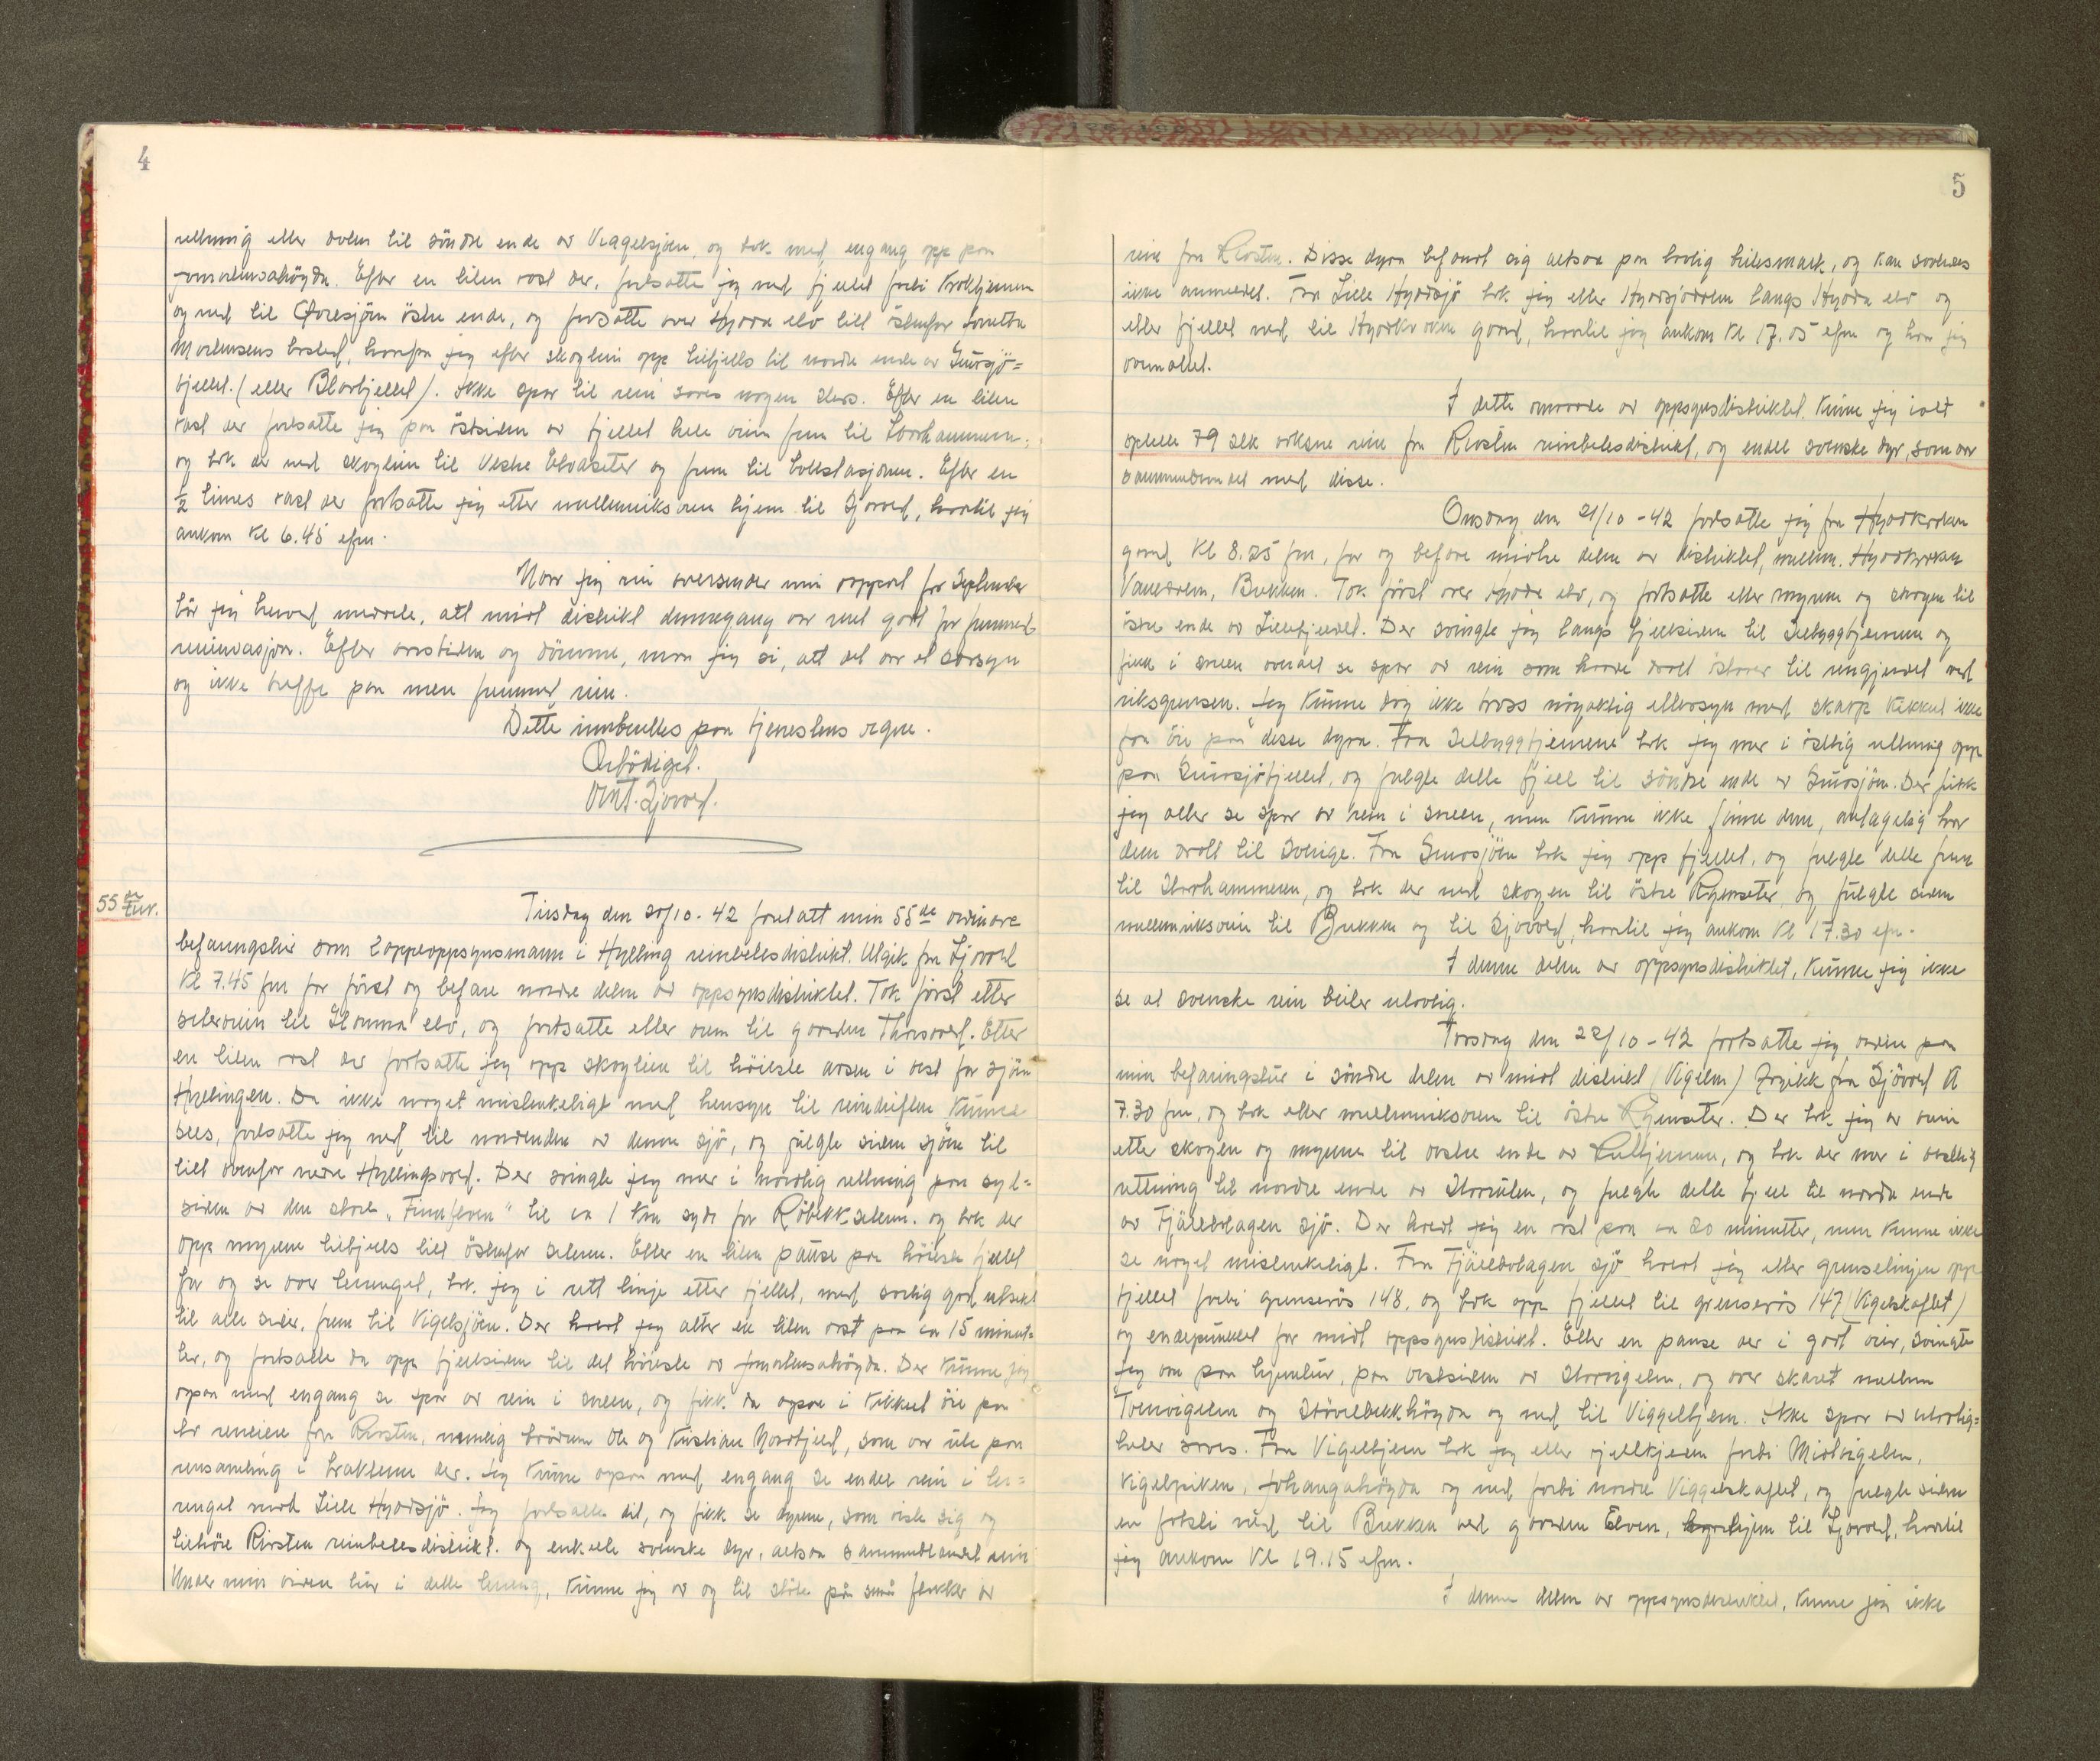 4
retning etter dalen til söndre ende av Viagelsjöen, og tok med engang opp paa
Jonasvensahögda. Efter en liten rast der, fortsatte jeg ned fjellet forbi Krokkjernen
og ned til Öfresjöen östre ende, og fortsatte over Hyoda elv litt östenfor
Mortensens bosted, hvorfra jeg efter skoglien opp tilfjells til nordre ende av Smosjö=
fjellet. (eller Blaafjellet). Ikke spor til rein saaes nogen steds. Efter en liten
rast der fortsatte jeg paa östsiden av fjellet hele veien frem til Storhammeren,
og tok der ned skoglien til Vestre Elvaseter og frem til tollstasjonen. Efter en
1/2 times rast der fortsatte jeg etter mellemriksveien hjem til Sjovold, hvortil jeg
ankom Kl 6.45 efm.
Naar jeg nu oversender min rapport for September
bör jeg herved meddele, att mitt distrikt dennegang var vel godt for fremmed
reininvasjon. Efter aarstiden og dömme, maa jeg si, att det var et særsyn
og ikke treffe paa mere fremmed rein.
Dette innberettes paa tjenestens vegne.
Ærbödigst.
Sjovold.
55 de tur.
Tirsdag den 20/10 - 42 foretatt min 55 de ordinære
befaringstur som lappeoppsynsmann i Hylling reinbeitesdistrikt. Utgik fra Sjovold
Kl 7.45 fm for först og befare nordre delen av oppsynsdistriktet. Tok först etter
seterveien til Glomma elv, og fortsatte etter veien til gaarden Thorsvold. Etter
en liten rast der fortsatte jeg opp skoglien til höieste aasen i vest for sjöen
Hyllingen. Da ikke noget mistenkeligt med hensyn til reindriften kunne
sees, fortsatte jeg ned til nordenden av denne sjö, og fulgte siden sjöen til
litt ovenfor nedre Hyllingsvold. Der svingte jeg mer i nordlig retning paa syd=
siden av den store "Finnfloen" til ca 1 km syd for Röbekksetern. og tok der
opp myrene tilfjells litt östenfor seteren. Etter en liten pause paa höieste fjellet
for og se over terrenget, tok jeg i rett linje etter fjellet, med særlig god utsikt
til alle sider, frem til Vigelsjöen. Der hvert jeg atter en liten rast paa ca 15 minut=
ter, og fortsatte da opp fjellsiden til det höieste av Jonasvensahögda. Der kunne jeg
ogsaa med engang se spor av rein i sneen, og fikk da ogsaa i kikkert öie paa
to reneiere fra Riasten, nemlig brödrene Ole og Kristian Nordfjell, som var ute paa
rensamling i traktene der. Jeg kunne ogsaa med engang se endel rein i ter=
renget mot Lille Hyddsjö. Jeg fortsatte dit, og fikk se dyrene, som viste sig og
tilhöre Riasten reinbeitesdistrikt. og enkelte svenske dyr, altsaa sammenblandet rein
Under min videre tur i dette terreng, kunne jeg av og til stöte på små flokker av
5
rein fra Riasten. Disse dyra befandt sig altsaa paa lovlig beitesmark, og kan saaledes
ikke anmeldes. Fra Lille Hyddsjö tok jeg etter Hyddsjödalen langs Hydda elv og
etter fjellet ned til Hyddkroken gaard, hvortil jeg ankom Kl 17.05 efm og hvor jeg
overnattet.
I dette omraade av oppsynsdistriktet kunne jeg ialt
optelle 79 stk voksne rein fra Riasten reinbeitesdistrikt, og endel svenske dyr, som var
sammenblandet med disse.
Onsdag den 21/10 - 42 fortsatte jeg fra Hyddkroken
gaard Kl 8.25 fm, for og befare midtre delen av distriktet, mellem Hyddkroken
Vauldalen, Brekken. Tok först over Hydda elv, og fortsatte etter myrene og skogen til
östre ende av Lillefjellet. Der svingte jeg langs fjellsiden til Selbyggtjernene og
fikk i sneen overalt se spor av rein som hadde draget östover til rengjerdet ved
riksgrensen. Jeg kunne dog ikke tross nöyaktig eftersyn med skarp kikkert ikke
faa öie paa disse dyra. Fra Selbyggtjernene tok jeg mer i östlig retning opp
paa Smosjöfjellet, og fulgte dette fjell til söndre ende av Smosjöen. Der fikk
jeg atter se spor av rein i sneen, men kunne ikke finne dem, antagelig har
dem dratt til Sverige. Fra Smosjöen tok jeg opp fjellet, og fulgte dette frem
til Storhammeren, og tok der ned skogen til östre Ryenseter, og fulgte siden
mellemriksveien til Brekken og til Sjovold, hvortil jeg ankom Kl 17.30 efm.
I denne delen av oppsynsdistriktet, kunne jeg ikke
se at svenske rein beiter ulovlig.
Torsdag den 22/10 - 42 fortsatte jeg videre paa
min befaringstur i söndre delen av mitt distrikt (Vigelen) Avgikk fra Sjövold Kl
7.30 fm, og tok etter mellemriksveien til östre Ryenseter. Der tok jeg av veien
etter skogen og myrene til vestre ende av Rutjernene, og tok der mer i östlig
retning til nordre ende av Storrülen, og fulgte dette fjell til nordre ende
av Fjällbolagen sjö. Der hvert jeg en rast paa ca 20 minutter, men kunne ikke
se noget mistenkeligt. Fra Fjällbolagen sjö hvert jeg etter grenselinjen opp
fjellet forbi grenserös 148, og tok opp fjellet til grenserös 147 (Vigelskaftet)
og endepunktet for mitt oppsynsdistrikt. Etter en pause der i godt veir, svingte
jeg om paa hjemtur, paa vestsiden av Storvigelen, og over skaret mellem
Tvervigelen og Störrelbekkhögda og ned til Viggeltjern. Ikke spor av ulovlig=
heter saaes. Fra Vigeltjern tok jeg etter fjellkjeden forbi Midtvigelen,
Vigelpiken, Johangahögda og ned forbi nordre Viggelskaftet, og fulgte siden
en fotsti ned til Brekken ved gaarden Elven, hjem til Sjovold, hvortil
jeg ankom Kl 19.15 efm.
I denne delen av oppsynsdistriktet, kunne jeg ikke